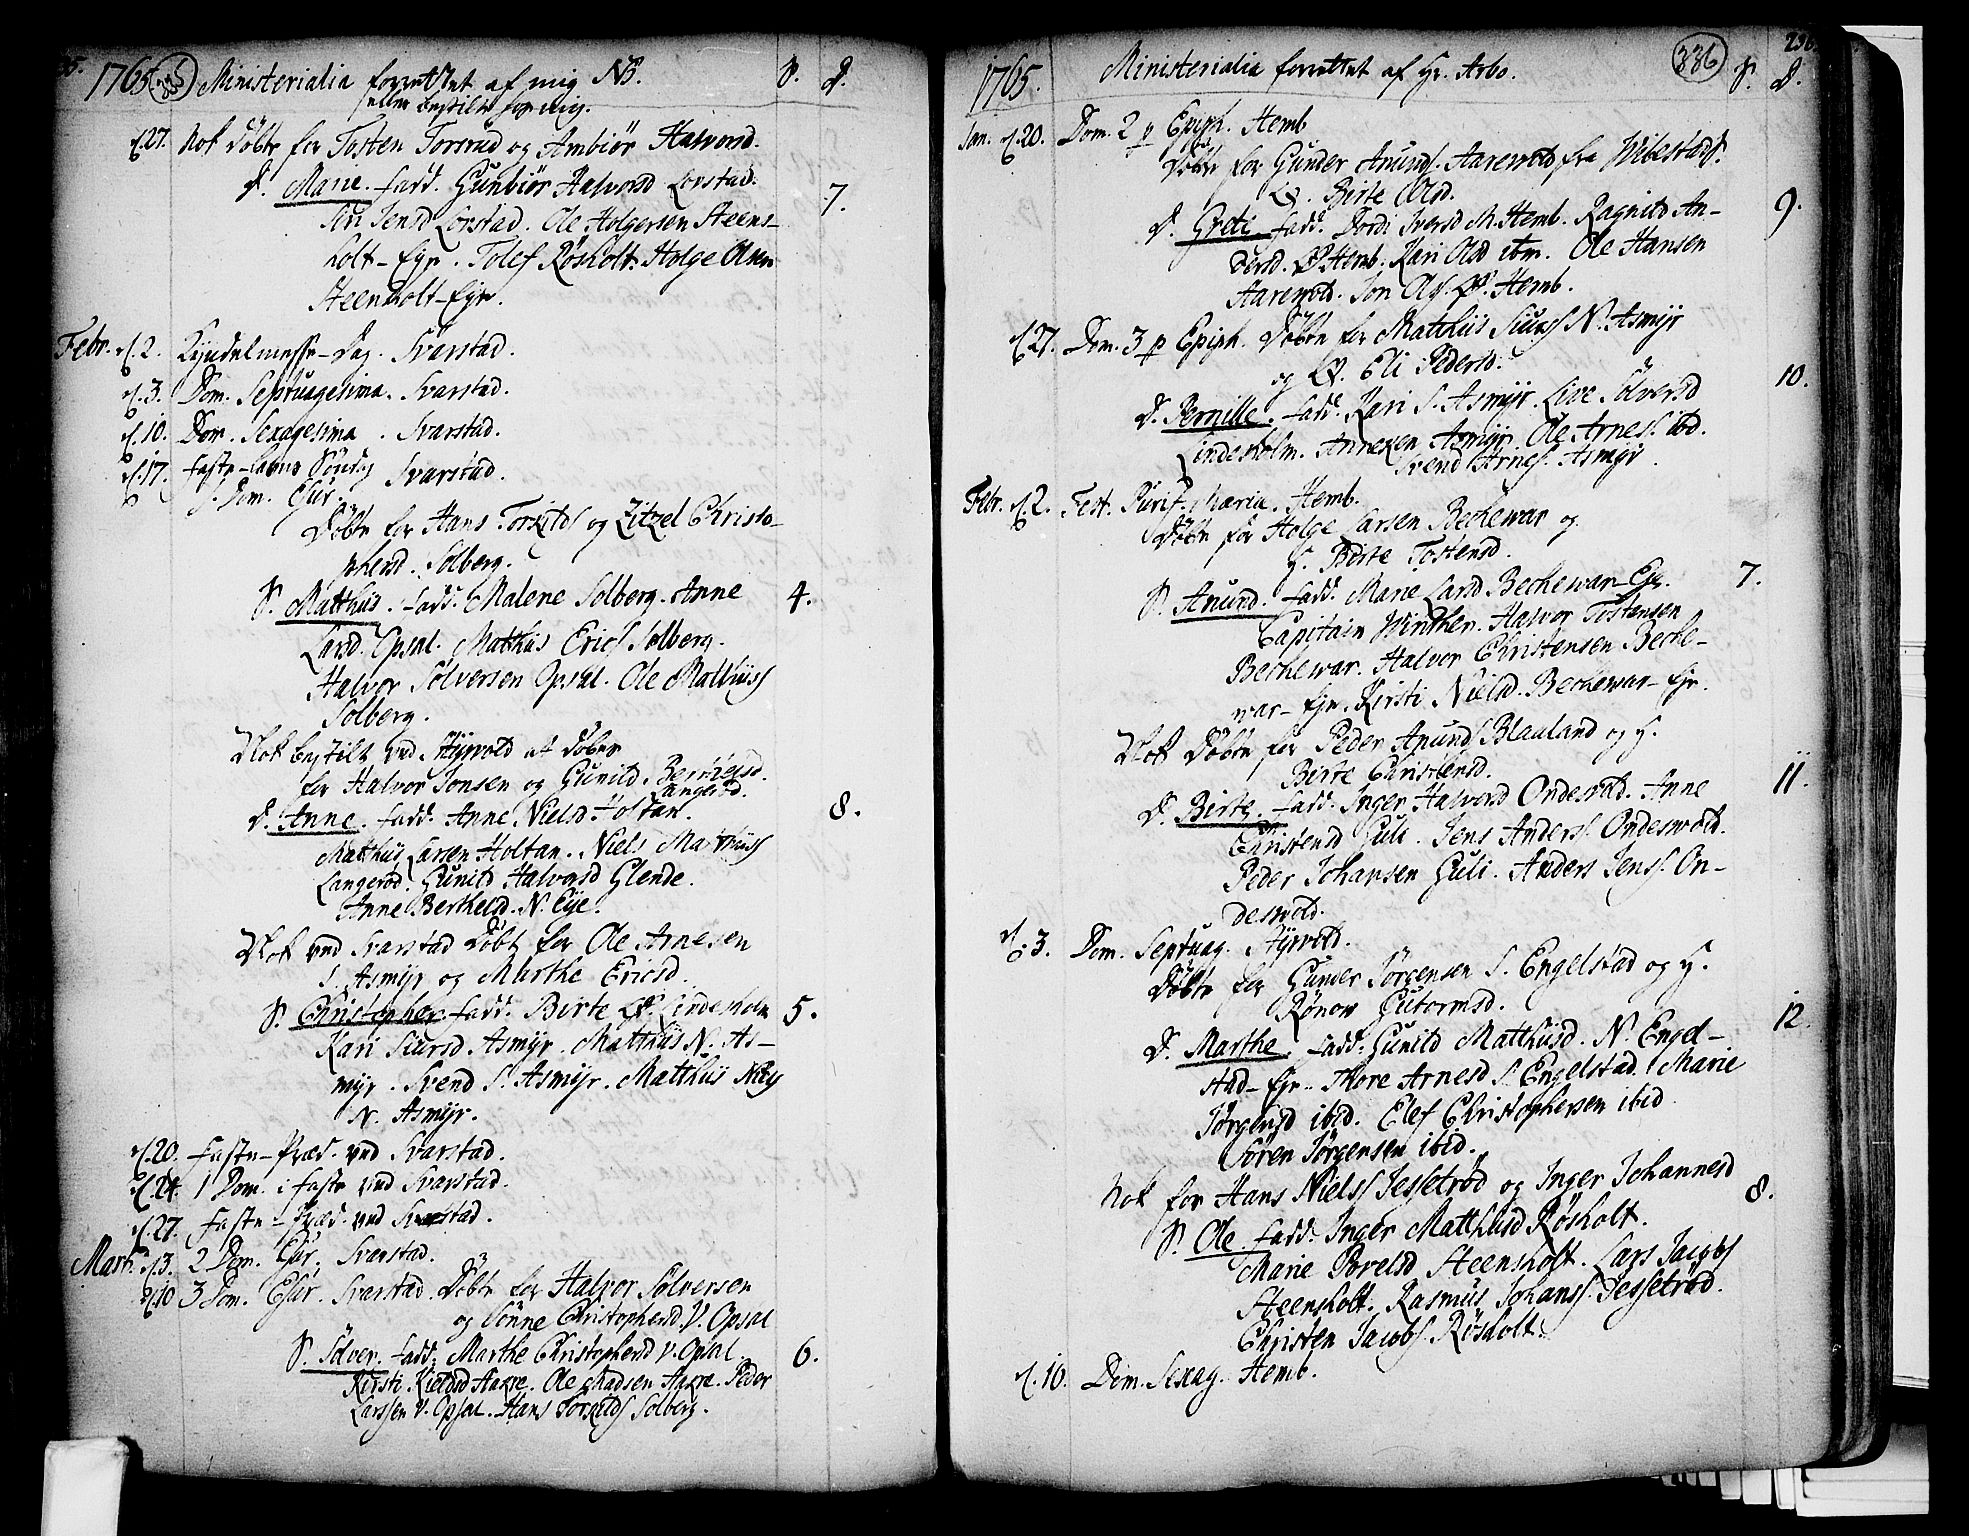 1765 335 Ministerialia forrettet af mig NB. S. D.
eller bestilt for mig.
d. 27. Nok døbte for Tosten Torsrud og Ambiør Halvorsd.
D. Marie. fadd. Gunbiør Halvorsd Lorstad. 7.
Siri Jensd Lorstad. Ole Holgersen Steens-
holt-Eye. Tolef Røsholt. Holge Olsen
Steensholt-Eye.
Febr. d. 2. Kyndelmesse-Dag. Svarstad.
d. 3. Dom. Septuagesima. Svarstad.
d. 10. Dom. Sexagesima. Svarstad.
d. 17. Faste-Lavns Søndag Svarstad.
Dom. Esur.
Døbte for Hans Torkilds og Zitzel Christo-
phersd. Solberg.
S. Matthis. fadd. Malene Solberg. Anne 4.
Larsd. Opsal. Matthis Erics Solberg.
Halvor Sølversen Opsal. Ole Mathiis
Solberg.
Nok bestilt ved Hyrvold at døbe
for Halvor Jonsen og Gunild Berthelsd.
Langerød.
D. Anne. fadd. Anne Nielsd Holtan. 8.
Matthiis Larsen Holtan. Niels Matthiis
Langerød. Gunild Halvorsd Glende.
Anne Berthelsd. N. Eye.
Nok ved Svarstad Døbt for Ole Arnesen
S. Asmyr og Marthe Ericsd.
S. Christopher. fadd. Birte Lindesholm 5.
Kari Siursd. Asmyr. Matthiis N. As-
myr. Svend S. Asmyr. Matthiis Niels
N. Asmyr.
d. 20. Faste-Præd. ved Svarstad.
d. 24. 1 Dom. i faste ved Svarstad.
d. 27. Faste-Præd. ved Svarstad.
Mart. d. 3. 2 Dom. Svarstad.
d. 10 3 Dom. Svarstad. Døbte for Halvor Sølversen
og Sønne Christophersd. V. Opsal
S. Sølver. fadd. Marthe Christophersd V. Opsal. 6.
Kirsti Kieldsd Aakre. Ole Madsen Aakre. Peder
Larssen V. Opsal. Hans Torkilds Solberg.
1765. Ministerialia forrettet af Hr. Arbo. 336 236. S. D.
Jan. d. 20. Dom. 2 p Epiph. Hemb
Døbte for Gunder Anunds. Aarevold fra Wibestad
Q. Birte Olsd.
D. Greti. fadd. Dordi Iversd M. Hemb. Ragnild An- 9.
dersd. Hemb. Kari Olsd ibm. Ole Hansen
Aarevold. Jon Ols. Hemb.
d. 27. Dom. 3 p Epiph. Døbte for Matthiis Siurs N. Asmyr
og Q. Eli Pedersd. 10.
D. Pernille. fadd. Kari S. Asmyr. Live Sølversd
Lindesholm. Asmyr. Ole Arnes. ibd.
Svend Arnes. Asmyr.
Febr. d. 2. Fest. Purif. Maria. Hemb.
Døbte for Holge Larsen Bechewar og
H. Birte Tostensd.
S. Anund. fadd. Marie Larsd Bechewar-Eje. 7.
Capitain Winther. Halvor Tostensen
Bechewar. Halvor Christensen Beche-
war-Eje. Kirsti Nielsd. Bechewar-Eje.
Nok Døbte for Peder Anunds Blauland og H.
Birte Christensd.
D. Birte. fadd. Inger Halvorsd Ondesvold. Anne 11.
Christensd Guli. Jens Anders. Ondeswold.
Peder Johansen Guli. Anders Jens. On-
deswold.
d. 3. Dom. Septuag. Hyrvold.
Døbte for Gunder Jørgensen S. Engelstad og H.
Rønow Gutormsd. 12.
D. Marthe. fadd. Gunild Matthiisd. N. Engel-
stad-Eje. Thore Arnesd S. Engelstad. Marie
Jørgensd ibid. Elef Christophersen ibid
Søren Jørgensen ibid.
Nok for Hans Niels Jessetrød og Inger Johannesd 8.
S. Ole. fadd. Inger Matthisd Røsholt.
Marie Povelsd Steensholt. Lars Jacobs
Steensholt. Rasmus Johans. Jessetrød.
Christen Jacobs. Røsholt.
d. 10. Dom. Sexag. Hemb.